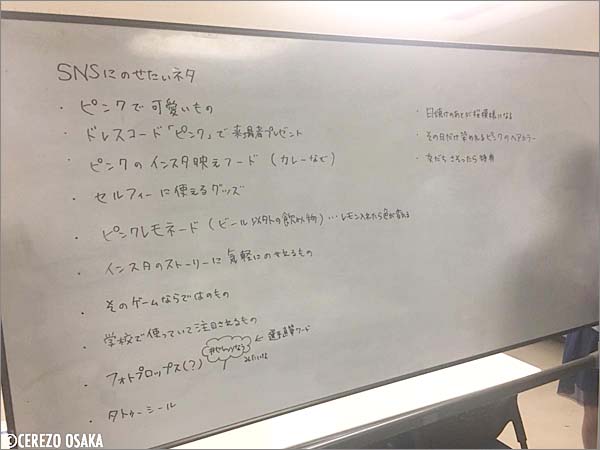 SNSにのせたいネタ
・ピンクで可愛いもの
・ドレスコード「ピンク」で来場者プレゼント
・ピンクのインスタ映えフード (カレーなど)
・セルフィーに使えるグッズ
・ピンクレモネード (ビール以外の飲み物) … レモン入れたら色が変わる
・インスタのストーリーに気軽にのせれるもの
・そのゲームならではのもの
・学校で使っていて注目されるもの
・フォトプロップス(?)
←選手直筆ワード
・タトゥーシール
・日焼けのあとが桜模様になる
・その日だけ染めれるピンクのヘアカラー
・友だちさそったら特典
©CEREZO OSAKA